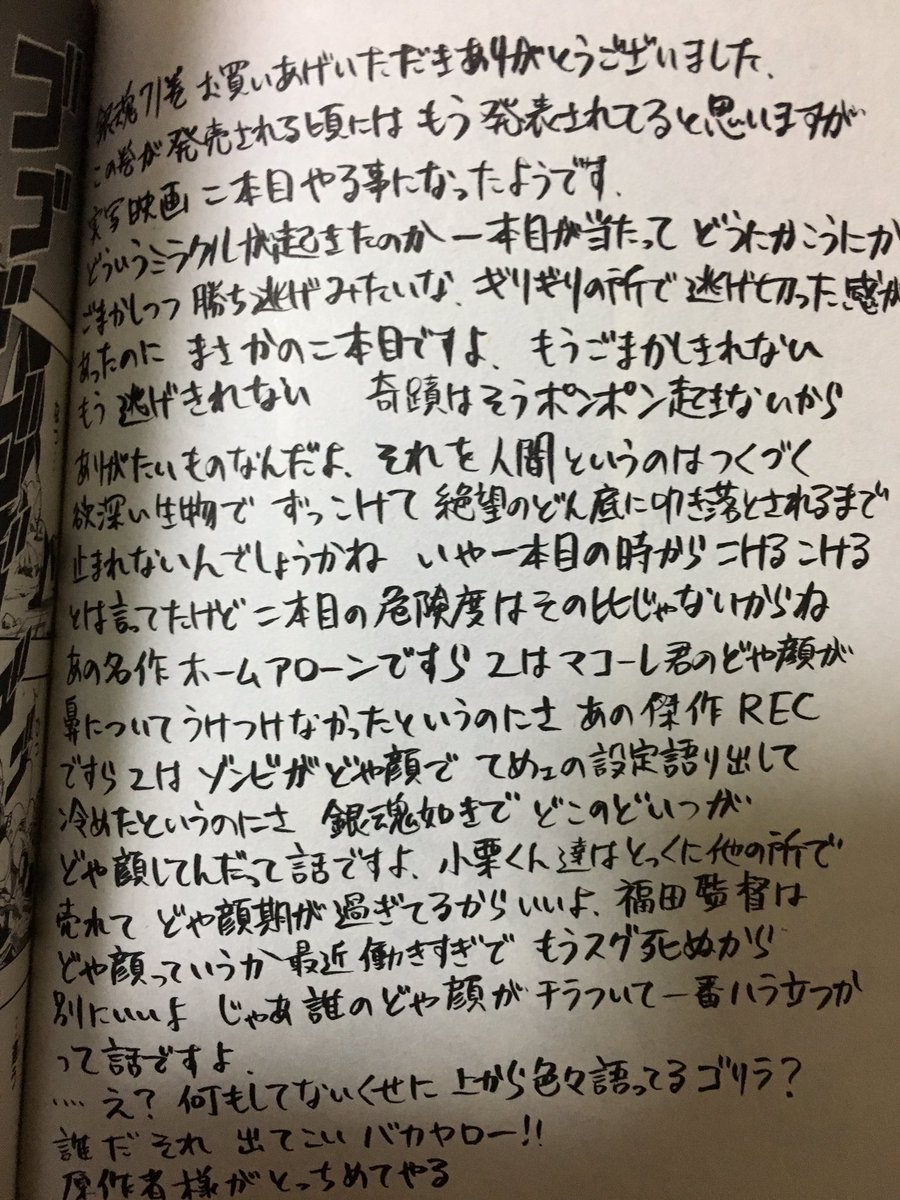 銀魂71巻 お買いあげいただきありがとうございました、
この巻が発売される頃には もう発表されてると思いますが
実写映画 二本目やる事になったようです、
どういうミラクルが起きたのか 一本目が当たって どうにかこうにか
ごまかしつつ 勝ち逃げみたいな、ギリギリの所で逃げ切った感が
あったのに まさかの二本目ですよ、もうごまかしきれない
もう逃げきれない 奇蹟はそうポンポン起きないから
ありがたいものなんだよ、それを人間というのはつくづく
欲深い生物で ずっこけて絶望のどん底に叩き落とされるまで
止まれないんでしょうかね いや一本目の時から こけるこける
とは言ってたけど二本目の危険度はその比じゃないからね
あの名作ホームアローンですら 2はマコーレ君のどや顔が
鼻についてうけつけなかったというのにさ あの傑作REC
ですら2は ゾンビがどや顔で てめェの設定語り出して
冷めたというのにさ 銀魂如きで どこのどいつが
どや顔してんだって話ですよ、小栗くん達はとっくに他の所で
売れて どや顔期が過ぎてるからいいよ、福田監督は
どや顔っていうか最近働きすぎで もうスグ死ぬから
別にいいよ じゃあ誰のどや顔がチラついて一番ハラ立つか
って話ですよ、
‥‥え? 何もしてないくせに 上から色々語ってるゴリラ?
誰だそれ 出てこい バカヤロー!!
原作者様がとっちめてやる
ゴゴゴ